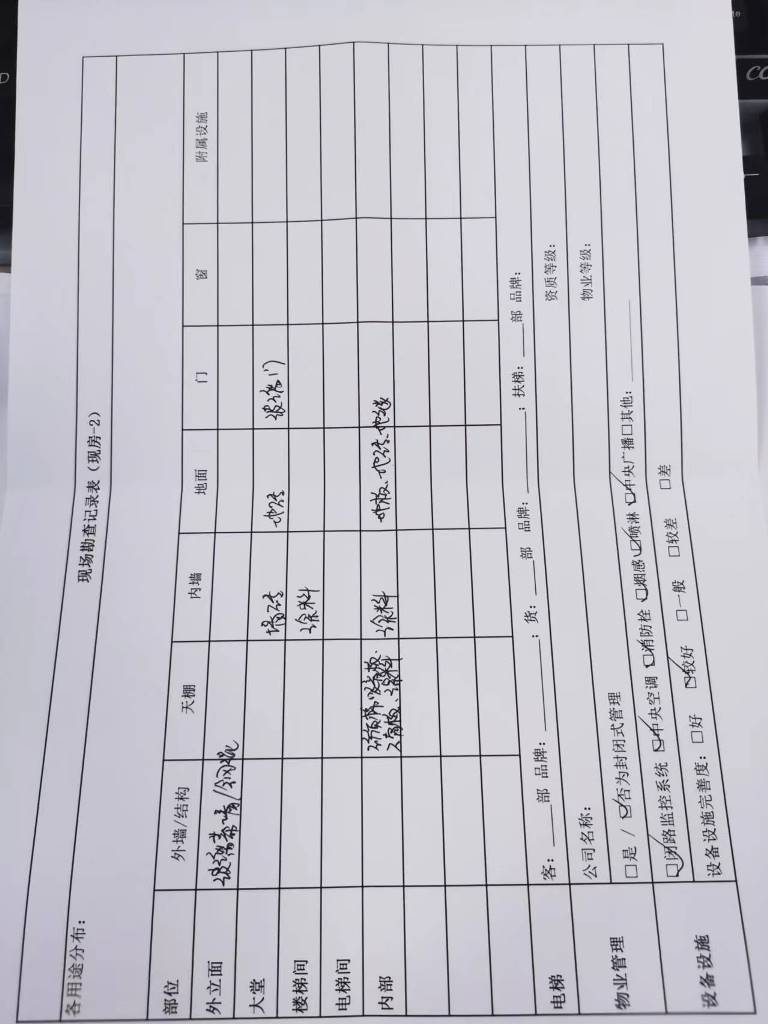 现场勘查记录表（现房-2）
各用途分布：
部位 外墙/结构 天棚 内墙 地面 门 窗 附属设施
外立面 玻璃幕墙/钢混
大堂 墙砖 地砖 玻璃门
楼梯间 涂料
电梯间
内部 石膏板、涂料 涂料 地板、地砖、地毯
电梯 客：____部 品牌：________；货：____部 品牌：________；扶梯：____部 品牌：
物业管理 公司名称： 资质等级：
□是 / ☑否为封闭式管理 物业等级：
设备设施 ☑闭路监控系统 ☑中央空调 ☑消防栓 ☑烟感 ☑喷淋 ☑中央广播□其他：________
设备设施完善度： □好 ☑较好 □一般 □较差 □差